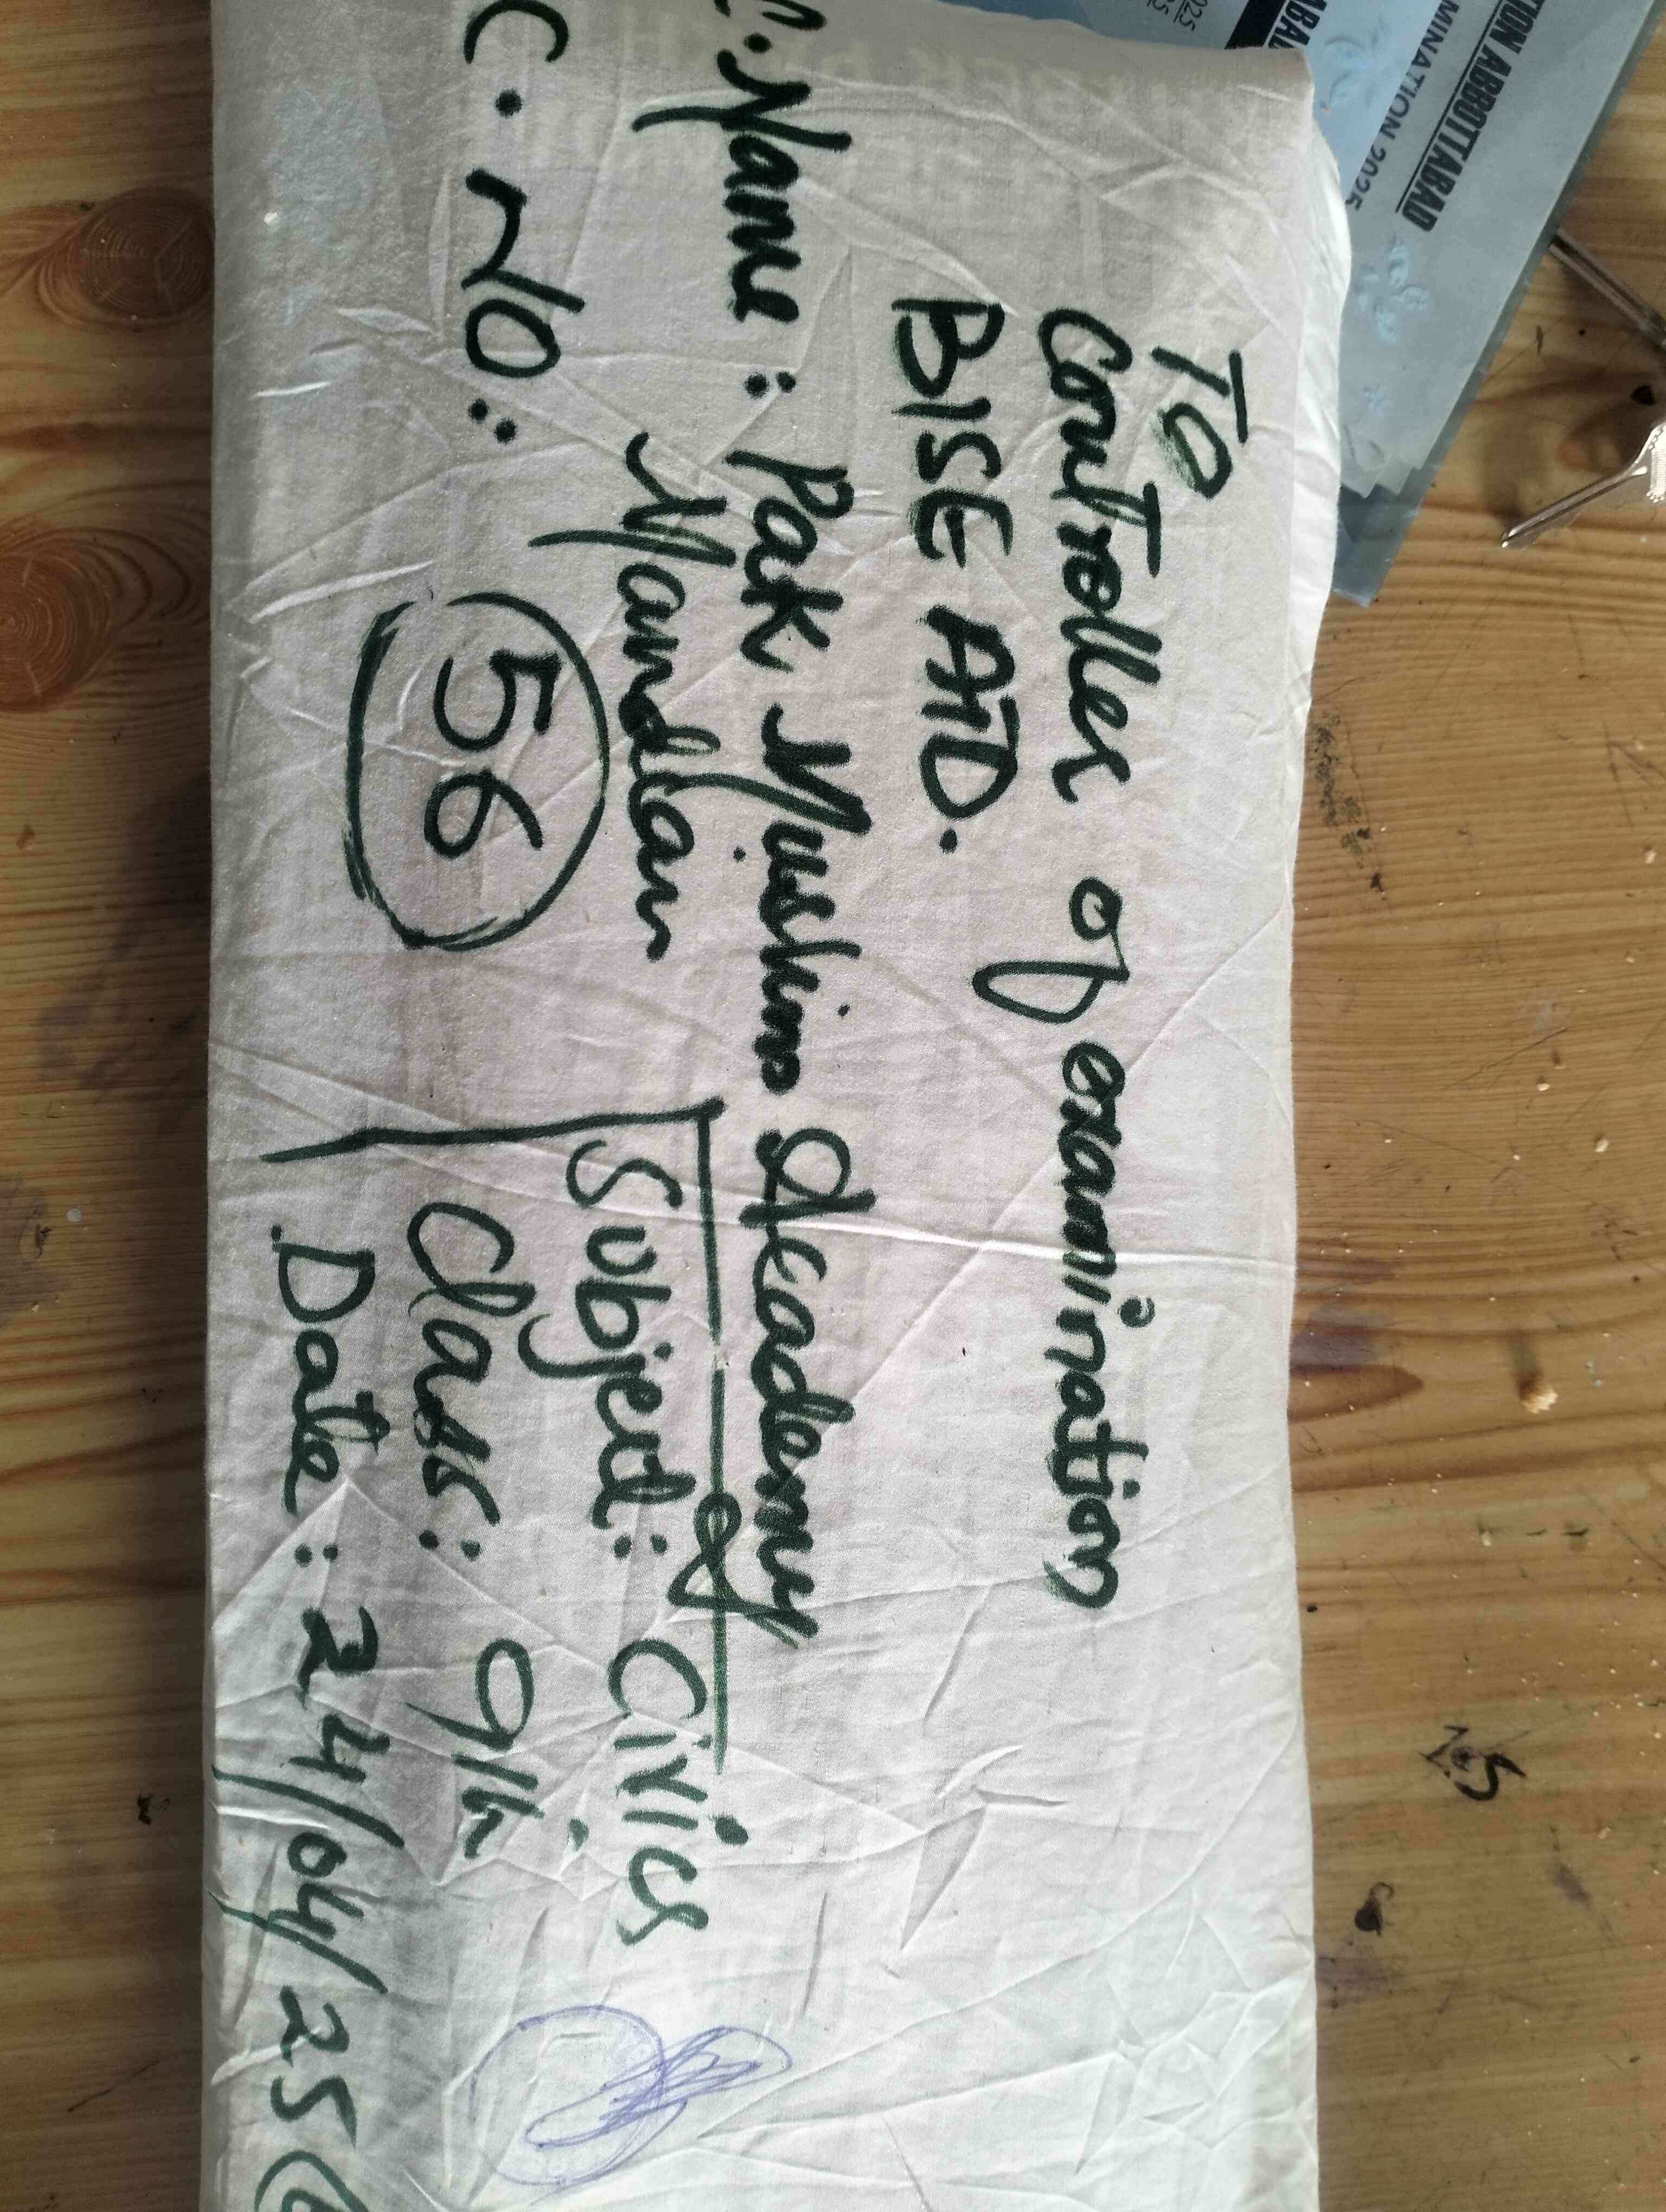 To
Controller of examination
BISE ATD.
C.Name : Pak Muslim Academy
Mandian
C. No :
56
Subject : Civics
Class : 9th
Date : 24/04/25
TION ABBOTTABAD
MINATION 2025
ABAD
025